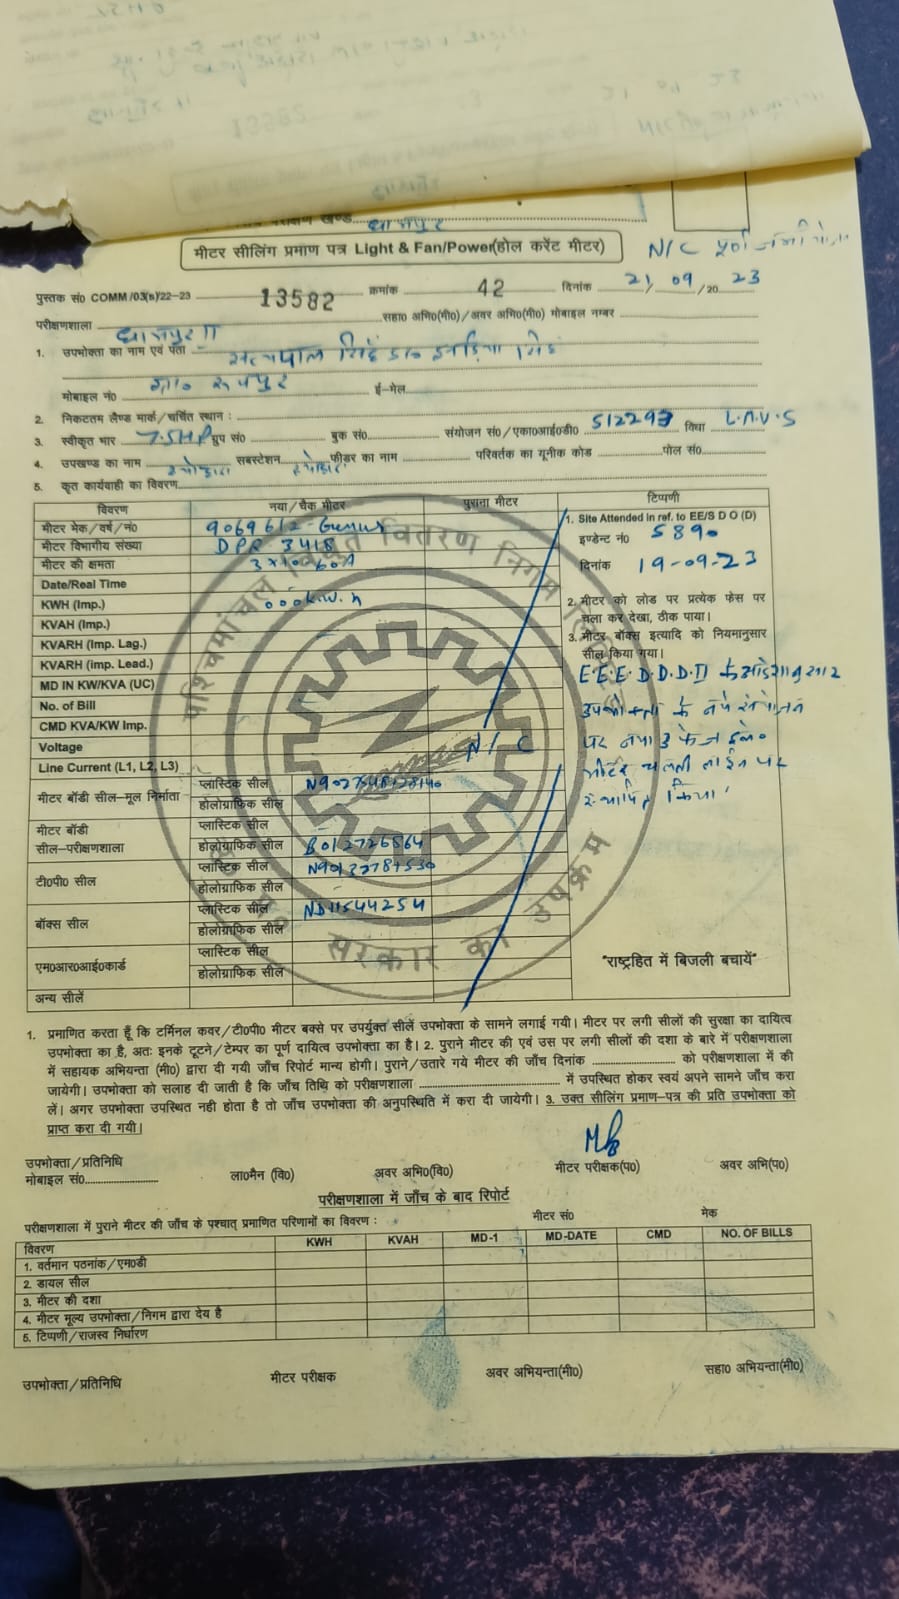 परीक्षण खण्ड धामपुर
मीटर सीलिंग प्रमाण पत्र Light & Fan/Power(होल करेंट मीटर)
N/C
पुस्तक सं0 COMM/03(s)/22-23 13582 क्रमांक 42 दिनांक 21/09/2023
परीक्षणशाला धामपुर II सहा0 अभि0(मी0)/अवर अभि0(मी0) मोबाइल नम्बर
1. उपभोक्ता का नाम एवं पता सत्यपाल सिंह S/o सिंह
ग्रा0 रूपपुर
मोबाइल नं0 ई-मेल
2. निकटतम लैण्ड मार्क/चर्चित स्थान :
3. स्वीकृत भार 7.5HP ग्रुप सं0 बुक सं0 संयोजन सं0/एका0आई0डी0 512293 विधा
4. उपखण्ड का नाम स्योहारा सबस्टेशन स्योहारा फीडर का नाम परिवर्तक का यूनीक कोड पोल सं0
5. कृत कार्यवाही का विवरण
विवरण नया/चैक मीटर पुराना मीटर टिप्पणी
मीटर मेक/वर्ष/नं0 9069612-Genus
मीटर विभागीय संख्या DPR 3418
मीटर की क्षमता 3x10-60A
Date/Real Time
KWH (Imp.) 000K.W.h
KVAH (Imp.)
KVARH (Imp. Lag.)
KVARH (imp. Lead.)
MD IN KW/KVA (UC)
No. of Bill
CMD KVA/KW Imp.
Voltage
Line Current (L1, L2, L3)
N/C
मीटर बॉडी सील-मूल निर्माता प्लास्टिक सील
होलोग्राफिक सील
मीटर बॉडी सील-परीक्षणशाला प्लास्टिक सील
होलोग्राफिक सील B012726564
टी0पी0 सील प्लास्टिक सील
होलोग्राफिक सील
बॉक्स सील प्लास्टिक सील ND11544254
होलोग्राफिक सील
एम0आर0आई0कार्ड प्लास्टिक सील
होलोग्राफिक सील
अन्य सीलें
1. Site Attended in ref. to EE/S D O (D)
इण्डेन्ट नं0 5890
दिनांक 19-09-23
2. मीटर को लोड पर प्रत्येक फेस पर
चला कर देखा, ठीक पाया।
3. मीटर बॉक्स इत्यादि को नियमानुसार
सील किया गया।
E.E.E.D.D.D.II के आदेशानुसार
उपभोक्ता के नये संयोजन
पर नया 3 फेज इले0
मीटर चलती लाईन पर
स्थापित किया।
"राष्ट्रहित में बिजली बचायें"
पश्चिमांचल विद्युत वितरण निगम लि
उ0 प्र0 सरकार का उपक्रम
1. प्रमाणित करता हूँ कि टर्मिनल कवर/टी0पी0 मीटर बक्से पर उपर्युक्त सीलें उपभोक्ता के सामने लगाई गयी। मीटर पर लगी सीलों की सुरक्षा का दायित्व
उपभोक्ता का है, अतः इनके टूटने/टेम्पर का पूर्ण दायित्व उपभोक्ता का है। 2. पुराने मीटर की एवं उस पर लगी सीलों की दशा के बारे में परीक्षणशाला
में सहायक अभियन्ता (मी0) द्वारा दी गयी जाँच रिपोर्ट मान्य होगी। पुराने/उतारे गये मीटर की जाँच दिनांक को परीक्षणशाला में की
जायेगी। उपभोक्ता को सलाह दी जाती है कि जाँच तिथि को परीक्षणशाला में उपस्थित होकर स्वयं अपने सामने जाँच करा
लें। अगर उपभोक्ता उपस्थित नही होता है तो जाँच उपभोक्ता की अनुपस्थिति में करा दी जायेगी। 3. उक्त सीलिंग प्रमाण-पत्र की प्रति उपभोक्ता को
प्राप्त करा दी गयी।
उपभोक्ता/प्रतिनिधि
मोबाइल सं0 ला0मैन (वि0) अवर अभि0(वि0) मीटर परीक्षक(प0) अवर अभि(प0)
परीक्षणशाला में जाँच के बाद रिपोर्ट
परीक्षणशाला में पुराने मीटर की जाँच के पश्चात् प्रमाणित परिणामों का विवरण : मीटर सं0 मेक
विवरण KWH KVAH MD-1 MD-DATE CMD NO. OF BILLS
1. वर्तमान पठनांक/एम0डी
2. डायल सील
3. मीटर की दशा
4. मीटर मूल्य उपभोक्ता/निगम द्वारा देय है
5. टिप्पणी/राजस्व निर्धारण
उपभोक्ता/प्रतिनिधि मीटर परीक्षक अवर अभियन्ता(मी0) सहा0 अभियन्ता(मी0)